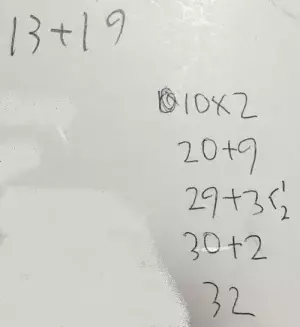 13+19
10×2
20+9
29+3<1 2
30+2
32